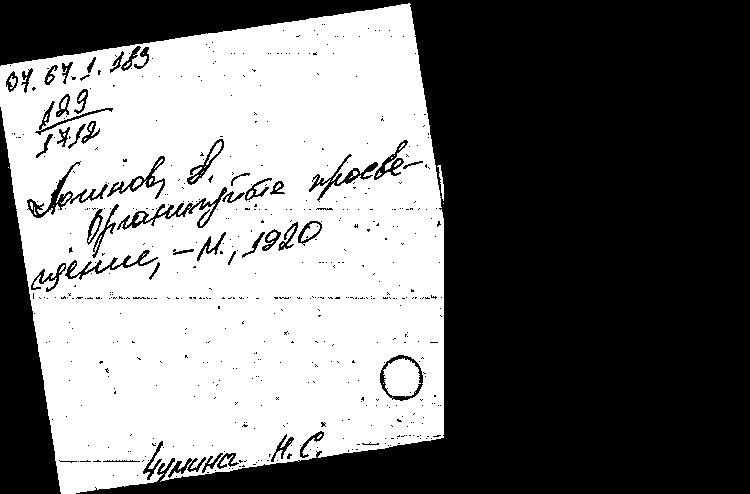 07.67.1.183
129
1712
Логинов, А.
Организуйте просве-
щение, – М., 1920
Чумина Н.С.